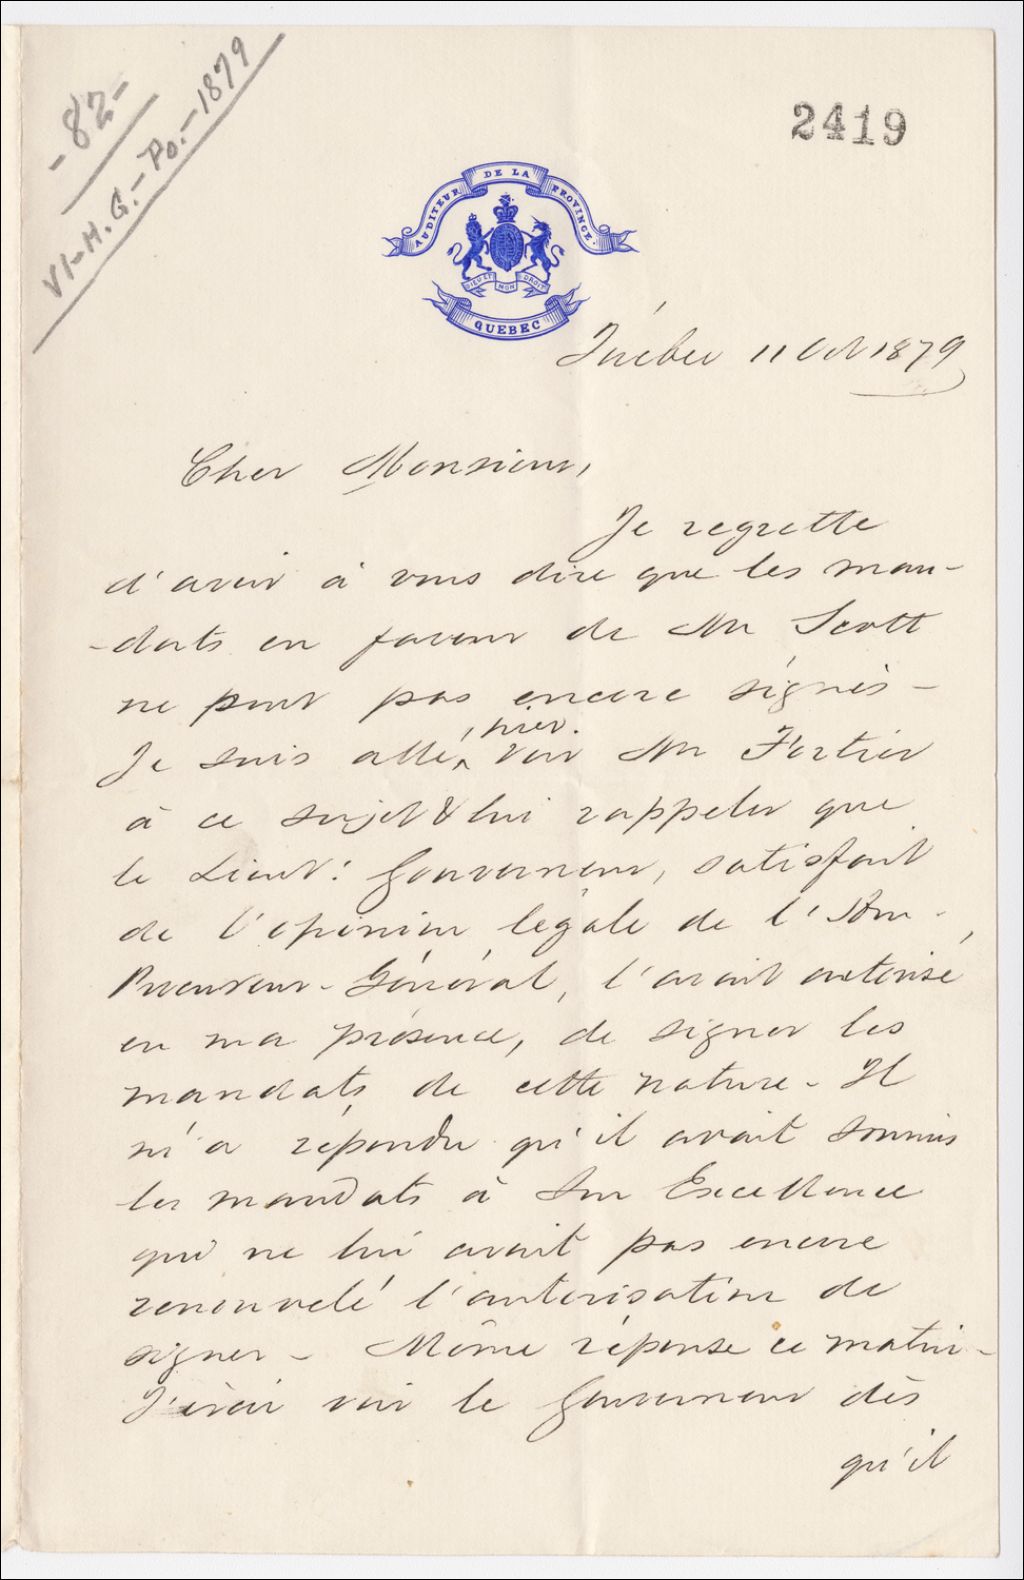 - 82 -
VI - H. G. - Po. - 1879
2419
AUDITEUR DE LA PROVINCE.
DIEU ET MON DROIT
QUEBEC
Québec 11 Oct 1879
Cher Monsieur,
Je regrette
d'avoir à vous dire que les man-
-dats en faveur de Mr Scott
ne sont pas encore signés -
hier.
Je suis allé, voir Mr Fortier
à ce sujet & lui rappeler que
le Lieut: Gouverneur, satisfait
de l'opinion légale de l'Hon.
Procureur-Général, l'avait autorisé,
en ma présence, de signer les
mandats de cette nature - Il
m'a répondu qu'il avait soumis
les mandats à Son Excellence
qui ne lui avait pas encore
renouvelé l'autorisation de
signer - Même réponse ce matin -
J'irai voir le Gouverneur dès
qu'il